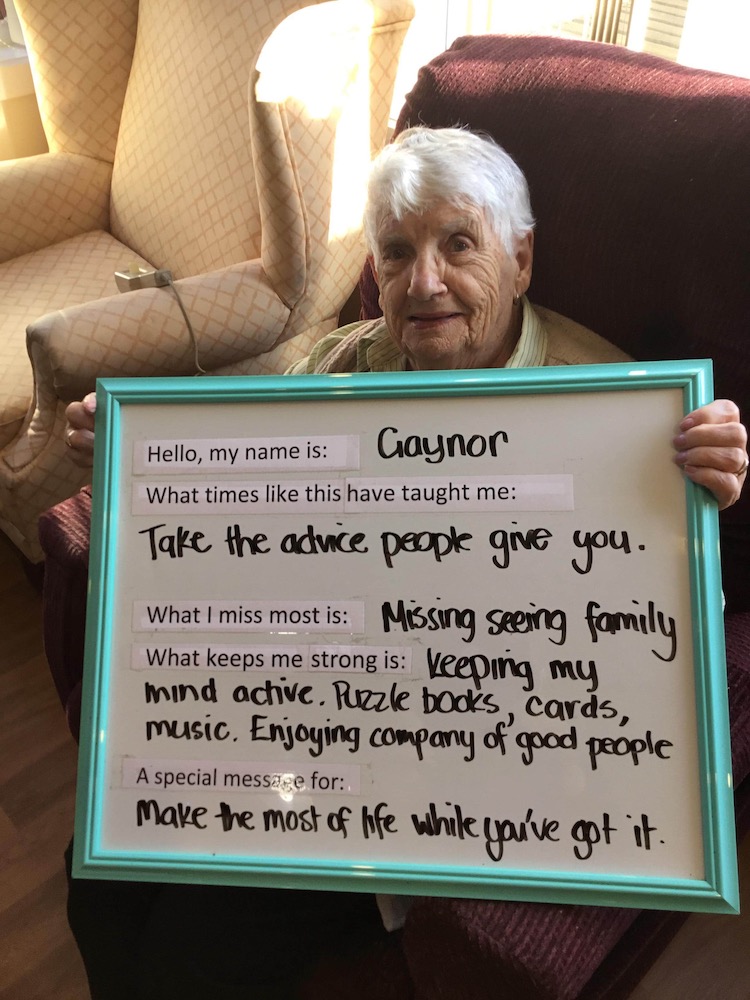 Hello, my name is: Gaynor
What times like this have taught me:
Take the advice people give you.
What I miss most is: Missing seeing family
What keeps me strong is: Keeping my
mind active. Puzzle books, cards,
music. Enjoying company of good people
A special message for:
Make the most of life while you've got it.